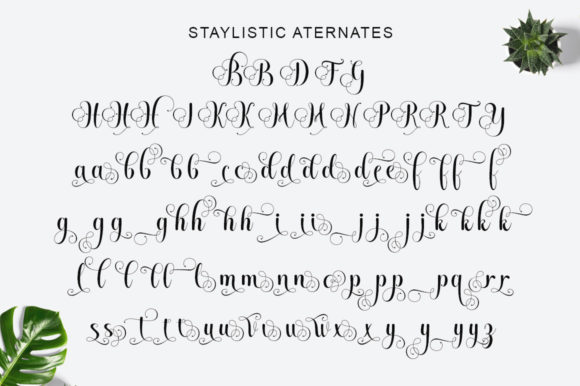 STAYLISTIC ATERNATES
B B D F G
H H H I K K H H H P R R T Y
aa bb bb cc dd dd dee f ff f
g gg ghh hh i ii j j jjk kk k
l l ll l l mm nn o p pp pq rr
ss t t t uu v u u w x x y y yyz